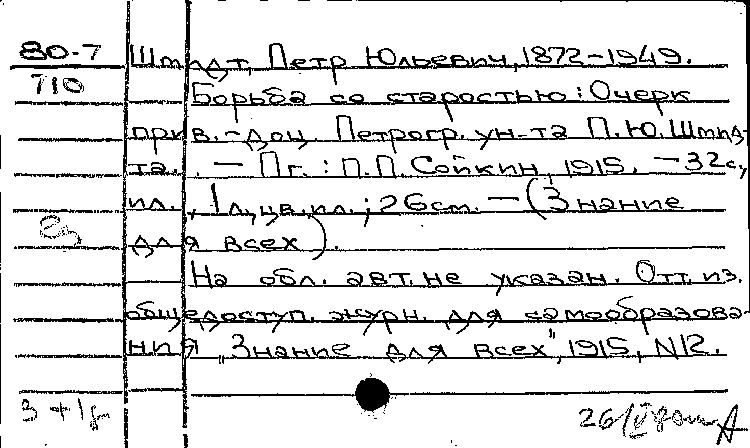 80-7 Шмидт, Петр Юльевич, 1872-1949.
710 Борьба со старостью: Очерк
прив.-доц. Петрогр. ун-та П.Ю. Шмид-
та. - Пг.: П.П. Сойкин, 1915. - 32с,
ил., 1 л. цв. ил.; 26 см. - (Знание
для всех).
На обл. авт. не указан. Отт. из.
общедоступ. журн. для самообразова-
ния „Знание для всех", 1915, N12.
3 + 1
26/V А